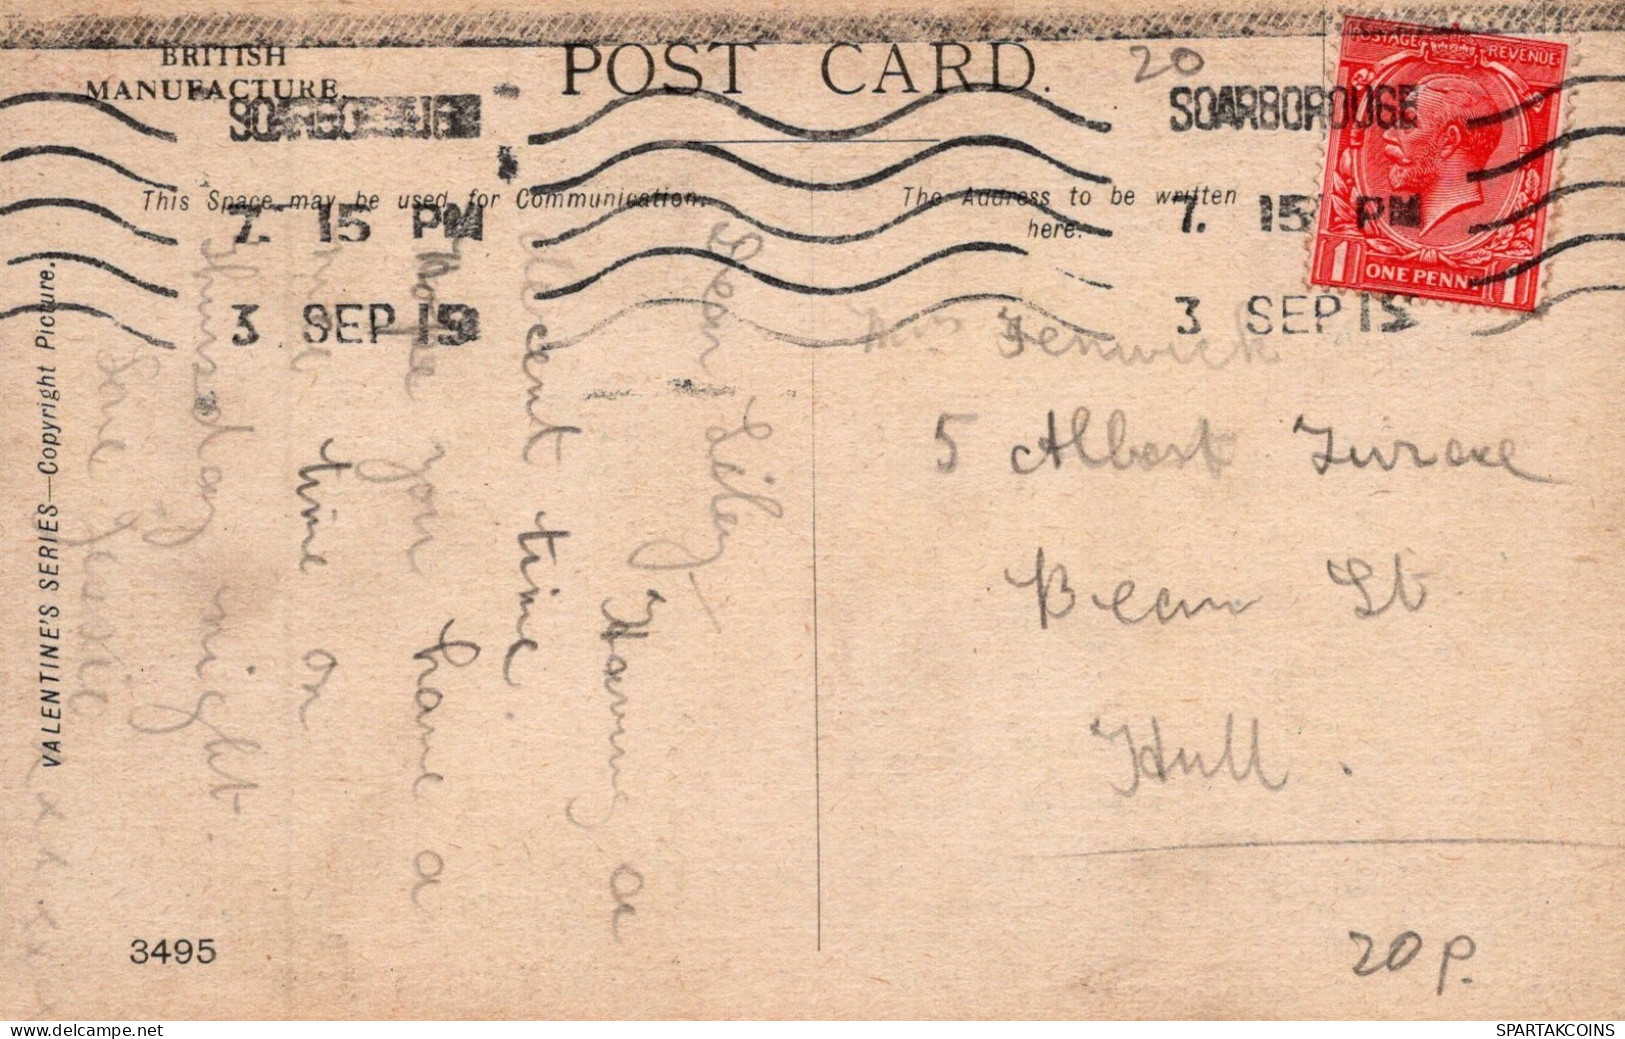 BRITISH
MANUFACTURE.
POST CARD.
20
POSTAGE REVENUE
1 ONE PENNY 1
SCARBOROUGH
7. 15 PM
3 SEP 19
7. 15 PM
3 SEP 19
This Space may be used for Communication.
The Address to be written
here.
VALENTINE'S SERIES—Copyright Picture.
Dear Liley
Having a
decent time.
Hope you have a
time on
Thursday night.
Love Jessie
x x x x x x
Fenwick
5 Albert Turace
Bean St
Hull.
20p.
3495
delcampe.net
SPARTAKCOINS